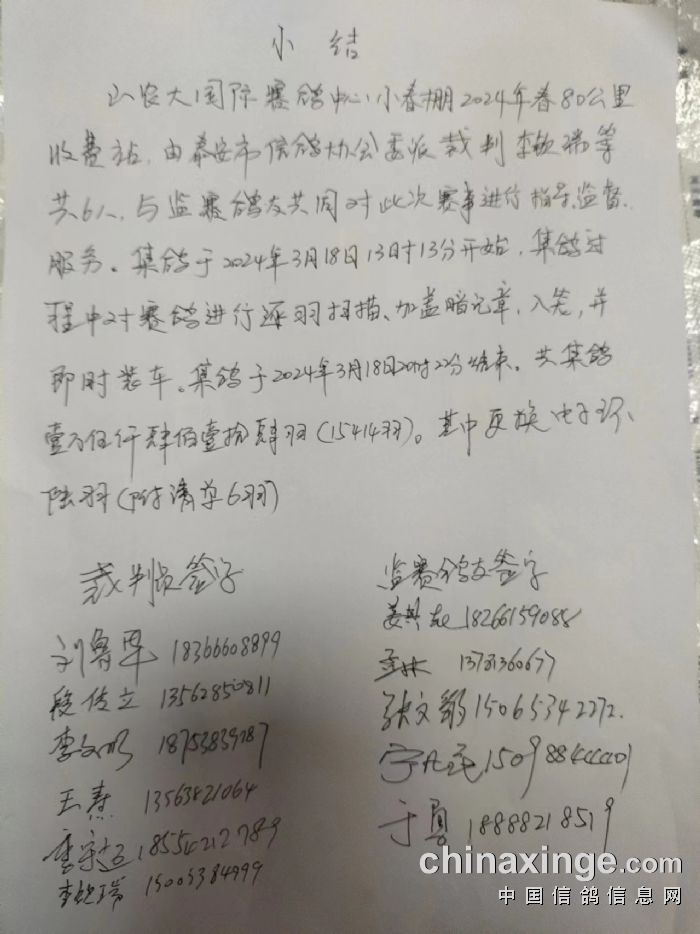 小 结
山农大国际赛鸽中心小春棚2024年春80公里
收费站,由泰安市信鸽协会委派裁判李钦瑞等
共6人,与监赛鸽友共同对此次赛事进行指导、监督、
服务。集鸽于2024年3月18日13时13分开始,集鸽过
程中对赛鸽进行逐羽扫描、加盖暗记章,入笼,并
即时装车。集鸽于2024年3月18日20时22分结束。共集鸽
壹万伍仟肆佰壹拾肆羽(15414羽)。其中更换电子环
陆羽(附清单6羽)
裁判员签字
刘鲁 18366608899
段传立 13562850811
李文 18753839287
王素 13563821064
李宗 18554212789
李钦瑞 15005384999
监赛鸽友签字
姜 18266159088
林 13781360677
张文 15065342272.
宁
于勇 18888218519
chinaxinge.com
中国信鸽信息网